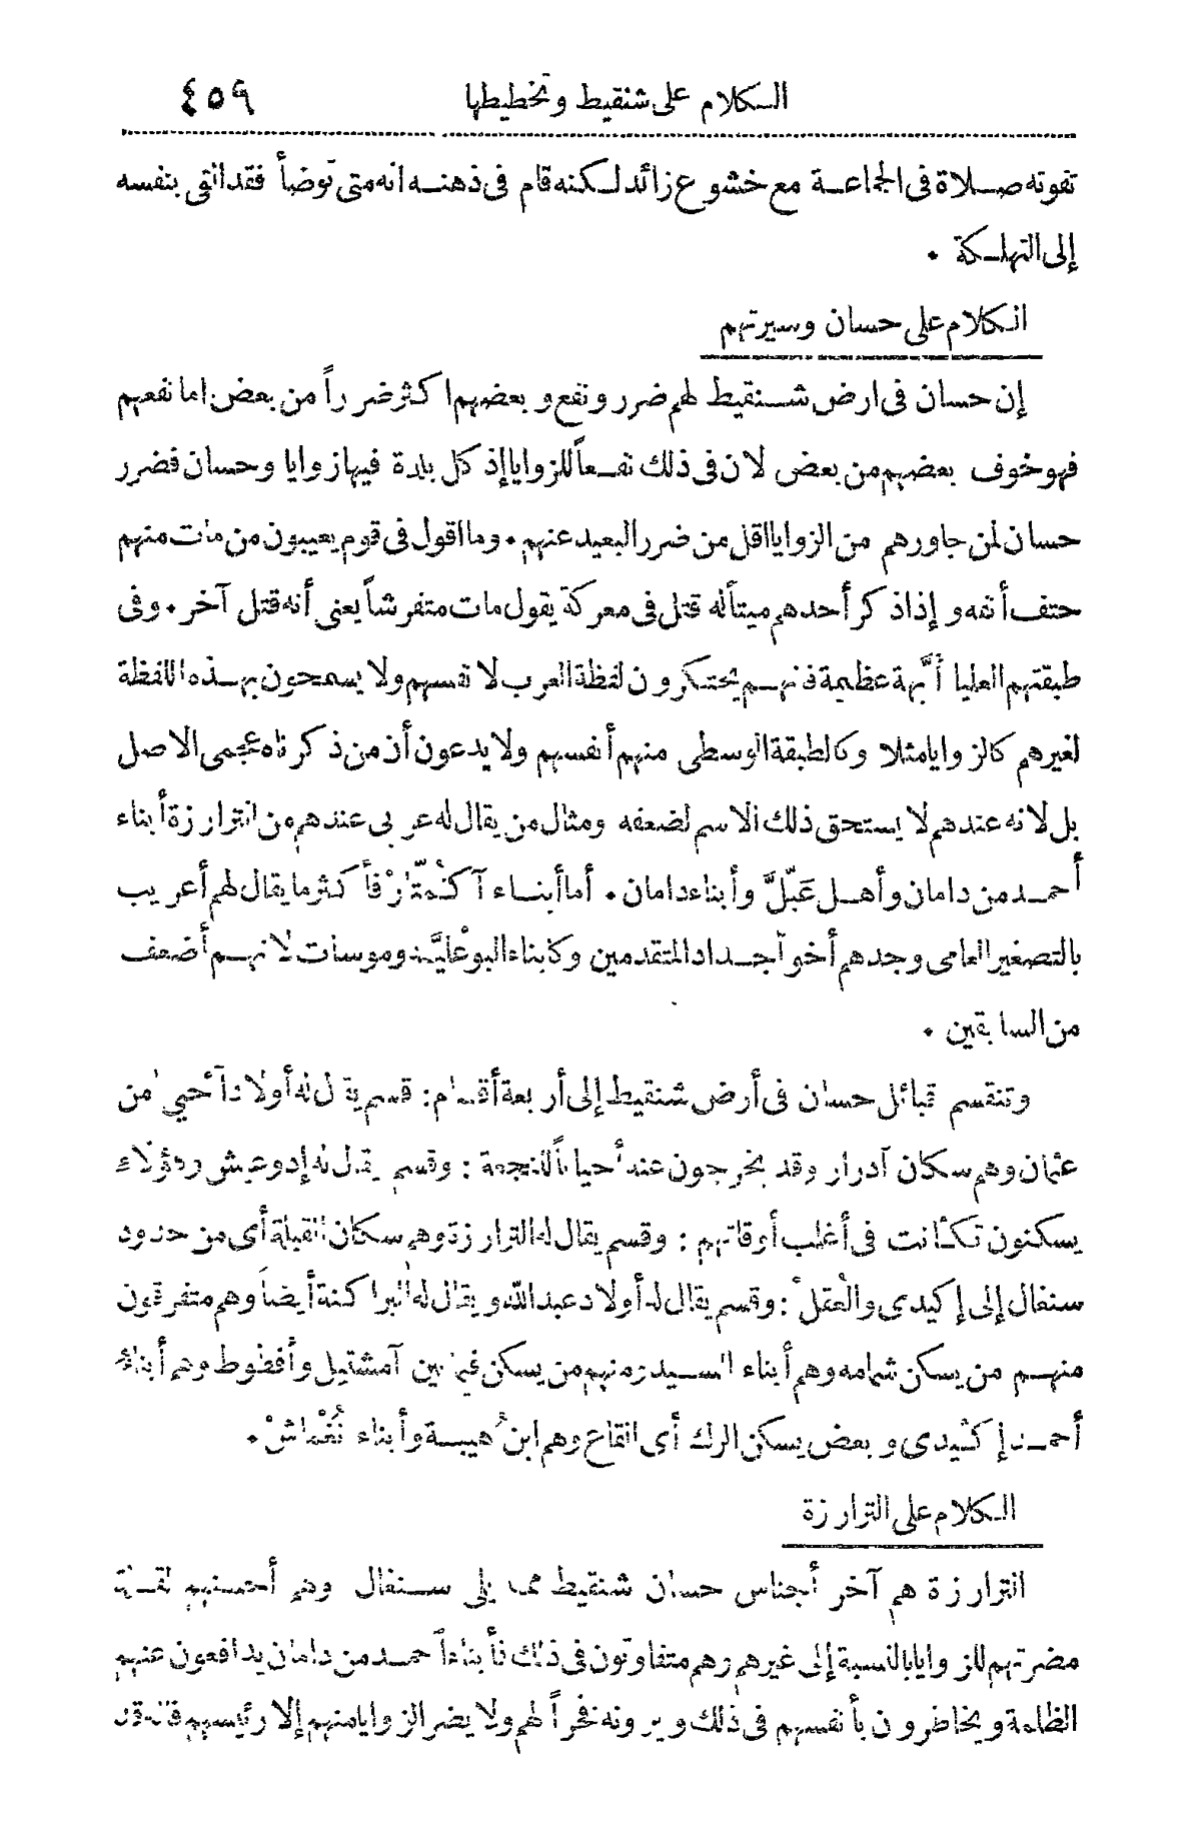 الكلام على شنقيط وتخطيطها ٤٥٩
تفوته صلاة فى الجماعة مع خشوع زائد لكنه قام فى ذهنه انه متى توضأ فقد القى بنفسه
إلى التهلكة .
الكلام على حسان وسيرتهم
إن حسان فى ارض شنقيط لهم ضرر ونفع وبعضهم اكثر ضرراً من بعض اما نفعهم
فهو خوف بعضهم من بعض لان فى ذلك نفعاً للزوايا إذ كل بلدة فيها زوايا وحسان فضرر
حسان لمن جاورهم من الزوايا اقل من ضرر البعيد عنهم . وما اقول فى قوم يعيبون من مات منهم
حتف أنفه وإذا ذكر أحدهم ميتاً له قتل فى معركة يقول مات متفرشاً يعنى أنه قتل آخر . وفى
طبقتهم العليا أُبَّهة عظيمة فانهم يحتكرون لفظة العرب لانفسهم ولا يسمحون بهذه اللفظة
لغيرهم كالزوايا مثلا وكالطبقة الوسطى منهم أنفسهم ولا يدعون أن من ذكرناه عجمى الاصل
بل لانه عندهم لا يستحق ذلك الاسم لضعفه ومثال من يقال له عربى عندهم من الترارزة أبناء
أحمد من دامان وأهل عَبّلَّ وأبناء دامان . أما أبناء آكمُتّارْ فأكثر ما يقال لهم أعريب
بالتصغير العامى وجدهم أخو آجداد المتقدمين وكابناء البوعْليَّه وموسات لانهم أضعف
من السابقين .
وتنقسم قبائل حسان فى أرض شنقيط إلى أربعة أقسام : قسم يقال له أولاد آحيي من
عثمان وهم سكان آدرار وقد يخرجون عنه أحياناً للنجعة : وقسم يقال له إدوعيش وهؤلاء
يسكنون تكانت فى أغلب أوقاتهم : وقسم يقال له الترارزة وهم سكان القبلة أى من حدود
سنغال إلى إكيدى والْعقلْ : وقسم يقال له أولاد عبد الله ويقال له البراكنة أيضاً وهم متفرقون
منهم من يسكن شمامه وهم أبناء السيد ومنهم من يسكن فيما بين آمشتيل وأفطوط وهم أبناء
أحمد إكيدى وبعض يسكن الرك أى القاع وهم ابن هيبة وأبناء نُغْماشْ .
الكلام على الترارزة
الترارزة هم آخر أجناس حسان شنقيط مما يلى سنغال وهم أحسنهم لقلة
مضرتهم للزوايا بالنسبة إلى غيرهم وهم متفاوتون فى ذلك فأبناء أحمد من دامان يدافعون عنهم
الظلمة ويخاطرون بأنفسهم فى ذلك ويرونه فخراً لهم ولا يضر الزوايا منهم إلا رئيسهم فانه قد